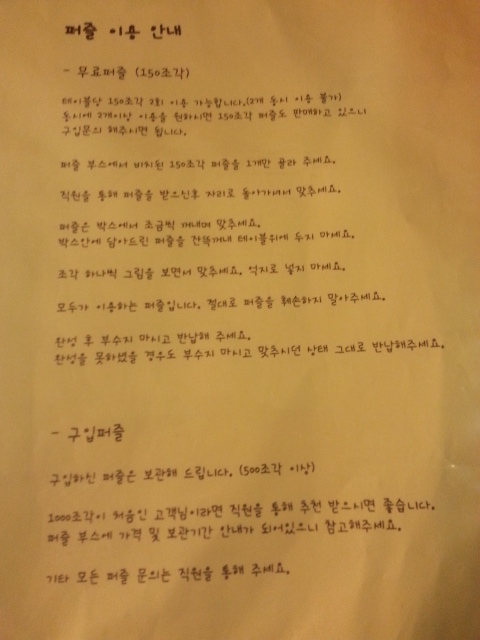 퍼즐 이용 안내
- 무료퍼즐 (150조각)
테이블당 150조각 2회 이용 가능합니다.(2개 동시 이용 불가)
동시에 2개이상 이용을 원하시면 150조각 퍼즐도 판매하고 있으니
구입문의 해주시면 됩니다.
퍼즐 부스에서 비치된 150조각 퍼즐을 1개만 골라 주세요.
직원을 통해 퍼즐을 받으신후 자리로 돌아가셔서 맞추세요.
퍼즐은 박스에서 조금씩 꺼내며 맞추세요.
박스안에 담아드린 퍼즐을 잔뜩꺼내 테이블위에 두지 마세요.
조각 하나씩 그림을 보면서 맞추세요. 억지로 넣지 마세요.
모두가 이용하는 퍼즐입니다. 절대로 퍼즐을 훼손하지 말아주세요.
완성 후 부수지 마시고 반납해 주세요.
완성을 못하셨을 경우도 부수지 마시고 맞추시던 상태 그대로 반납해주세요.
- 구입퍼즐
구입하신 퍼즐은 보관해 드립니다. (500조각 이상)
1000조각이 처음인 고객님이라면 직원을 통해 추천 받으시면 좋습니다.
퍼즐 부스에 가격 및 보관기간 안내가 되어있으니 참고해주세요.
기타 모든 퍼즐 문의는 직원을 통해 주세요.